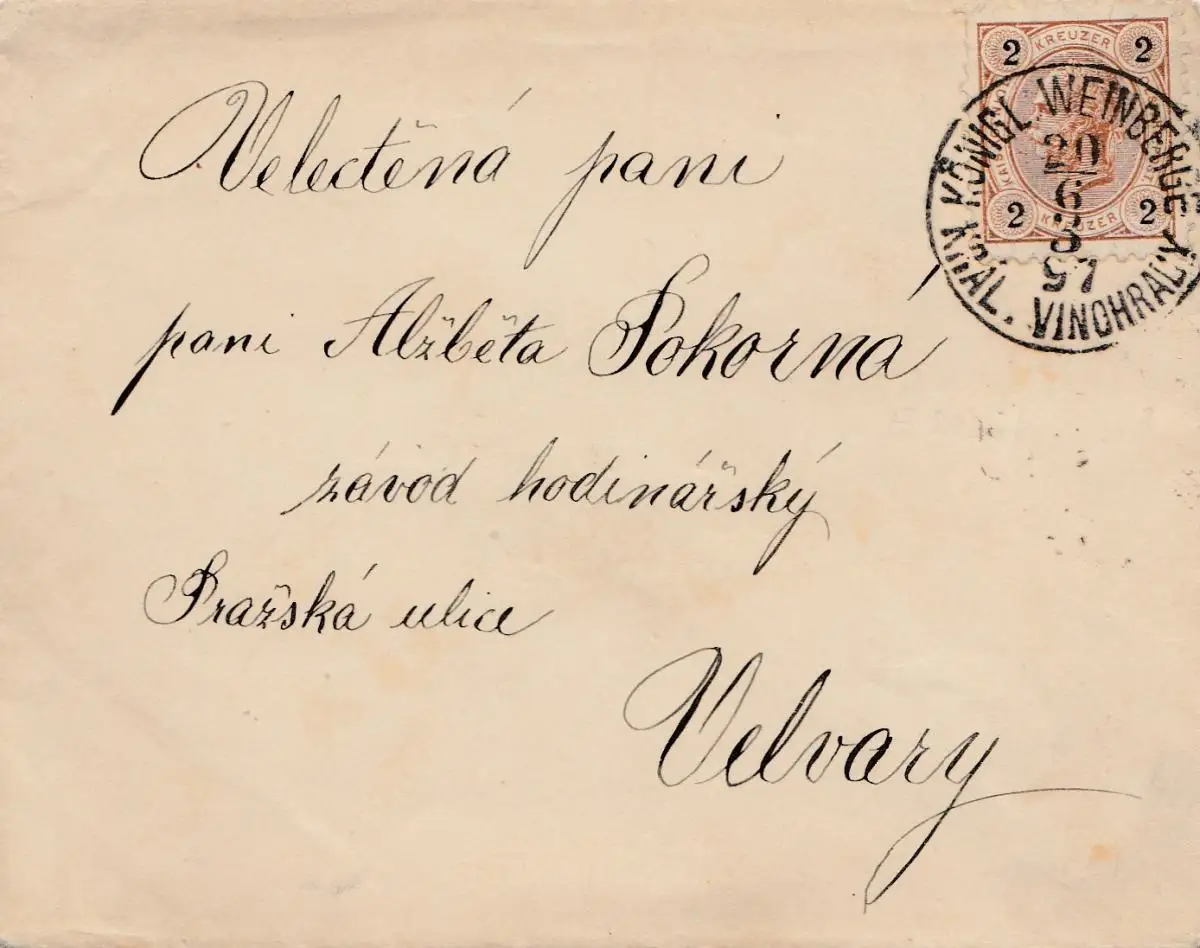 2 KREUZER 2
KÖNIGL. WEINBERGE
20
6
3
97
KRÁL. VINOHRADY
2 KREUZER 2
Velectěná paní
paní Alžběta Pokorná
závod hodinářský
Pražská ulice
Velvary